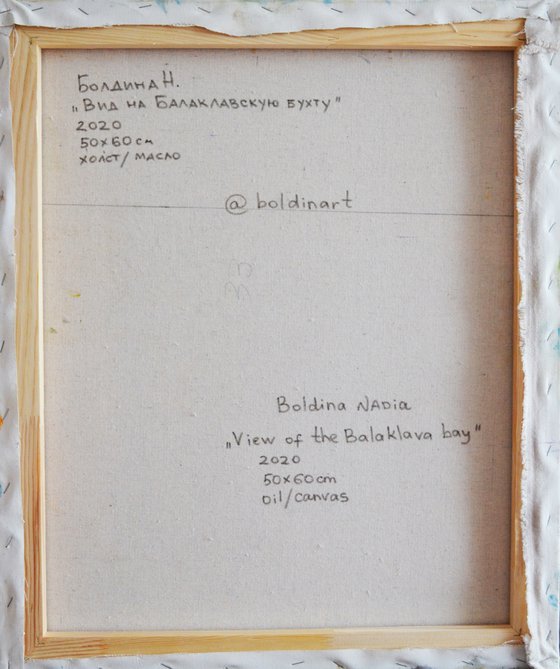 Болдина Н.
„Вид на Балаклавскую бухту"
2020
50х60см
холст/масло
@ boldinart
Boldina Nadia
„View of the Balaklava bay"
2020
50x60cm
oil/canvas